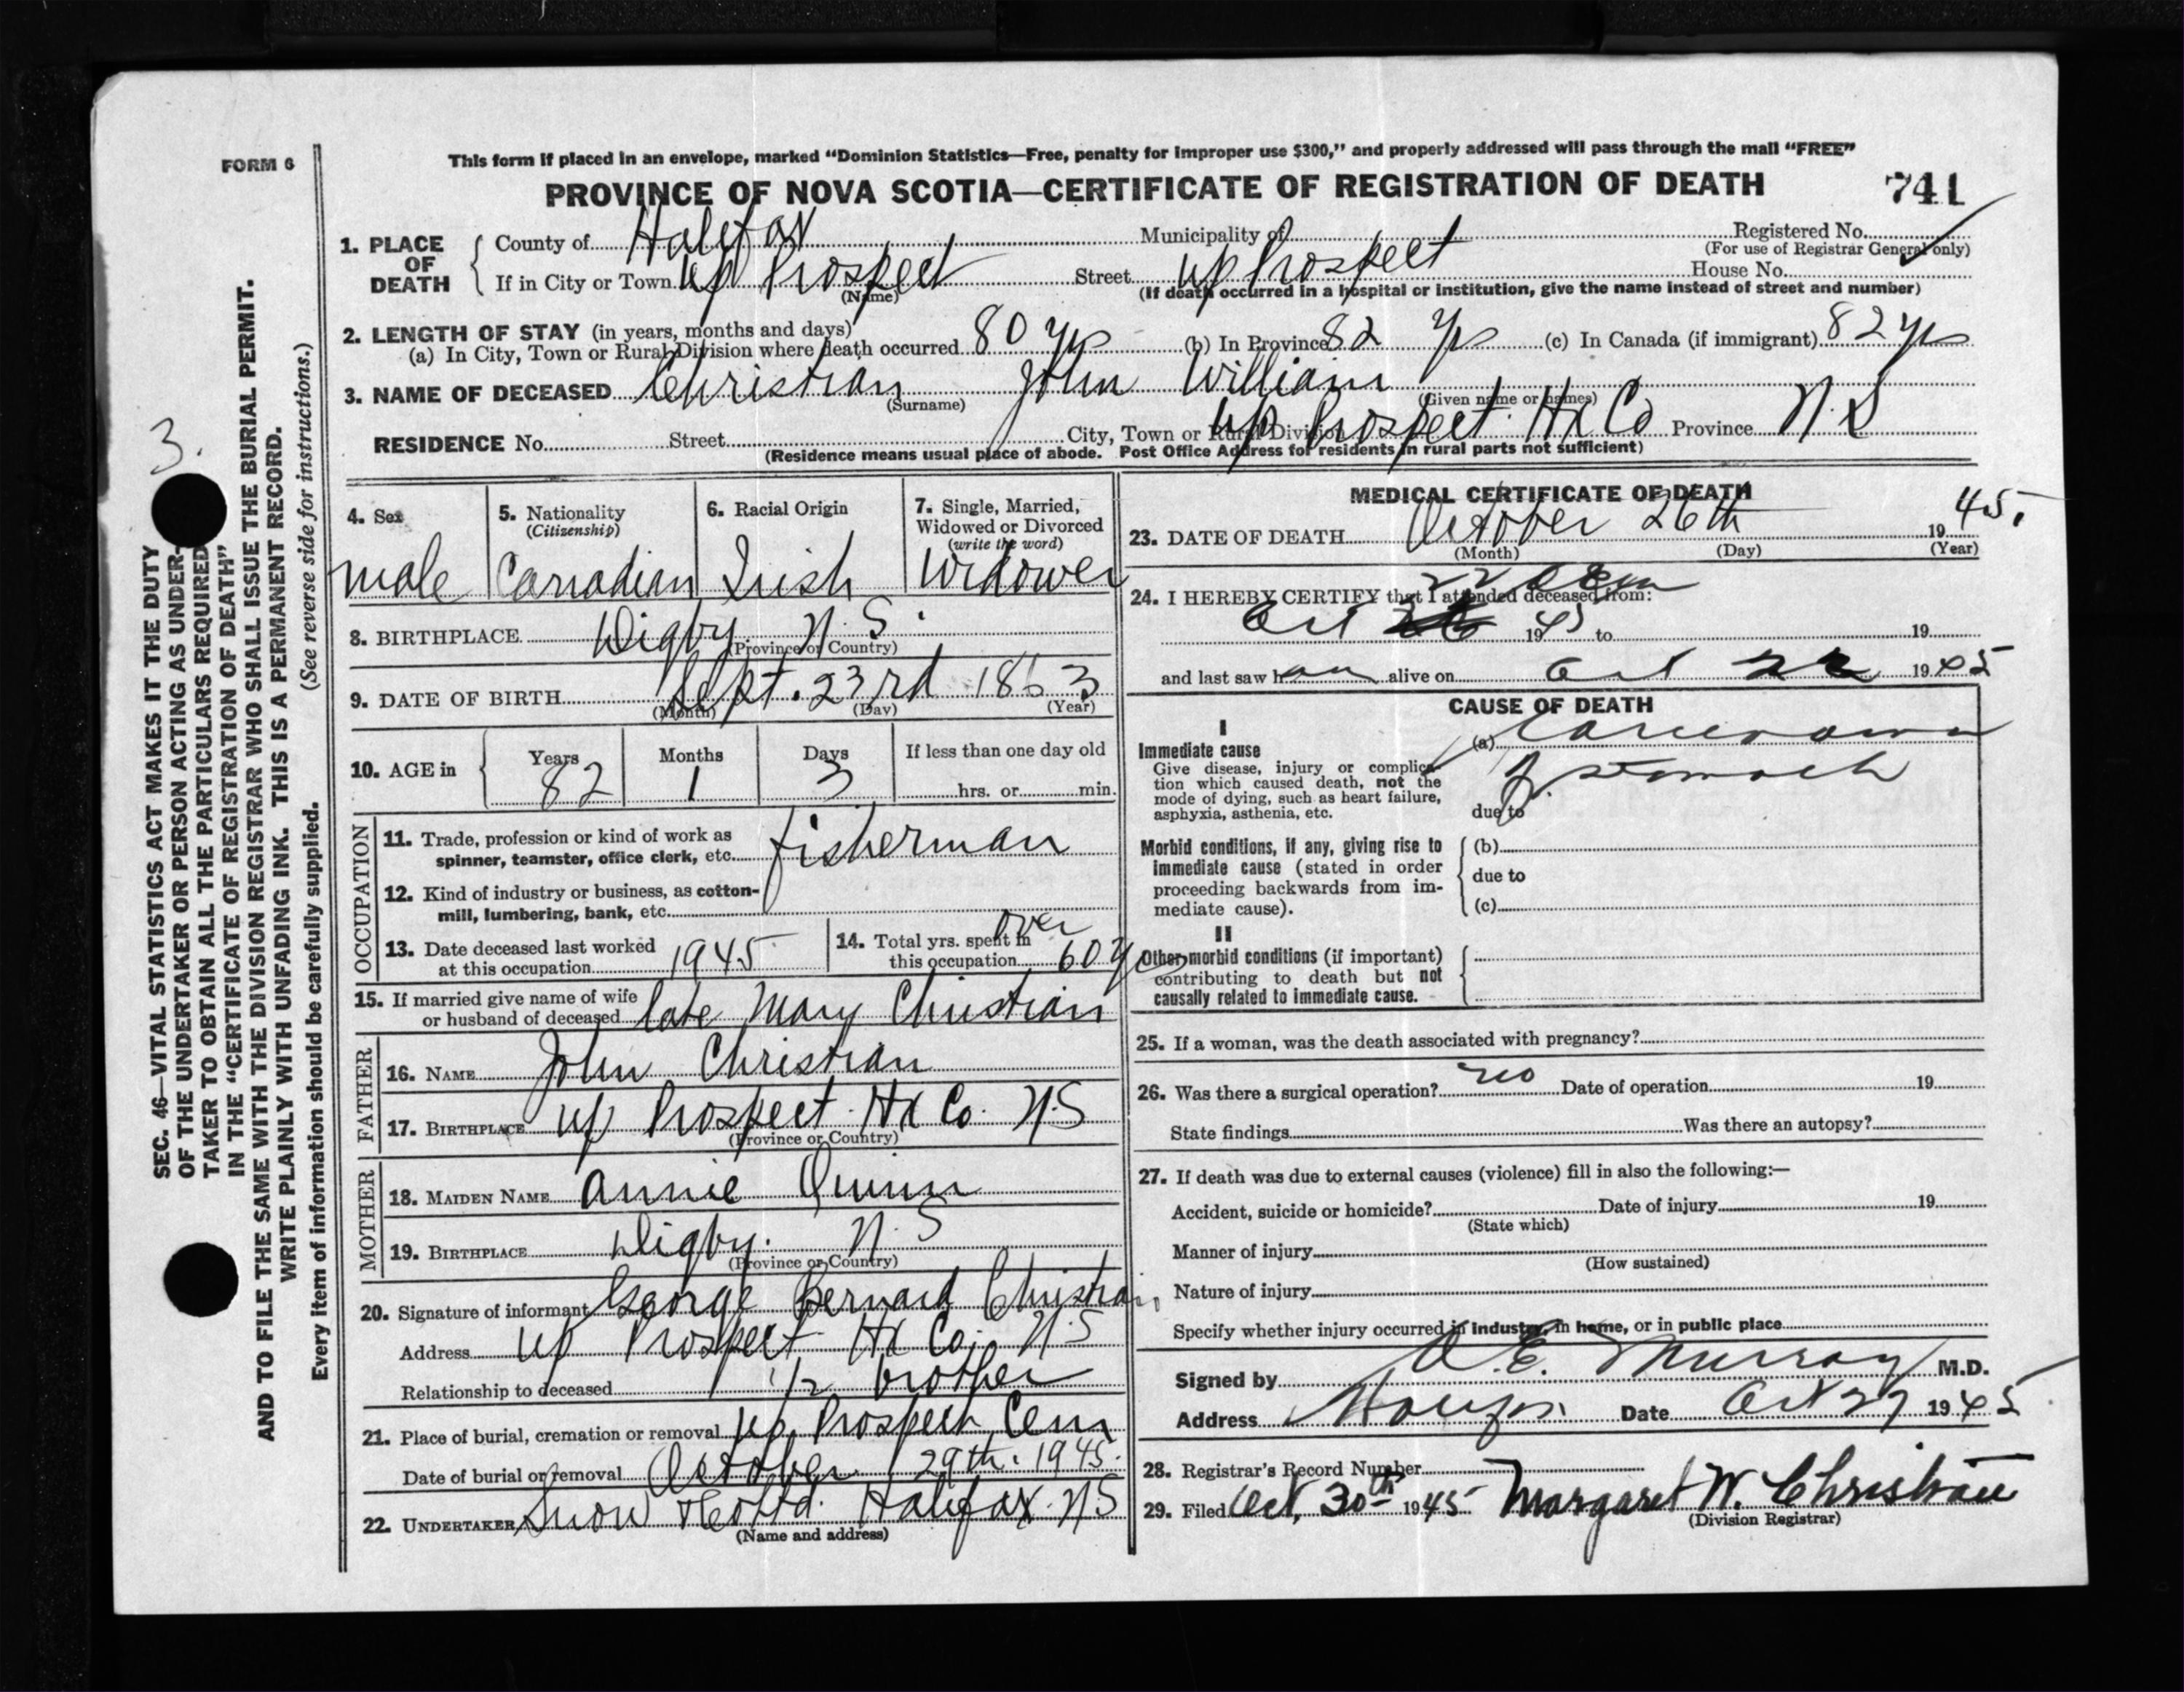 FORM 6
This form if placed in an envelope, marked “Dominion Statistics—Free, penalty for improper use $300,” and properly addressed will pass through the mail “FREE”
PROVINCE OF NOVA SCOTIA—CERTIFICATE OF REGISTRATION OF DEATH 741
1. PLACE OF DEATH
County of Halifax Municipality of Registered No.
(For use of Registrar General only)
If in City or Town Up Prospect Street Up Prospect House No.
(Name) (If death occurred in a hospital or institution, give the name instead of street and number)
2. LENGTH OF STAY (in years, months and days)
(a) In City, Town or Rural Division where death occurred 80 yrs (b) In Province 82 yrs (c) In Canada (if immigrant) 82 yrs
3. NAME OF DECEASED Christian John William
(Surname) (Given name or names)
RESIDENCE No. Street City, Town or Rural Division Up Prospect Hx Co Province N.S
(Residence means usual place of abode. Post Office Address for residents in rural parts not sufficient)
4. Sex
male
5. Nationality
(Citizenship)
Canadian
6. Racial Origin
Irish
7. Single, Married,
Widowed or Divorced
(write the word)
Widower
8. BIRTHPLACE Digby N.S.
(Province or Country)
9. DATE OF BIRTH Sept. 23rd 1863
(Month) (Day) (Year)
10. AGE in Years Months Days If less than one day old
82 1 3 hrs. or min.
OCCUPATION
11. Trade, profession or kind of work as
spinner, teamster, office clerk, etc. fisherman
12. Kind of industry or business, as cotton-
mill, lumbering, bank, etc.
13. Date deceased last worked
at this occupation 1945
14. Total yrs. spent in over
this occupation 60 yrs
15. If married give name of wife
or husband of deceased late Mary Christian
FATHER
16. NAME John Christian
17. BIRTHPLACE Up Prospect Hx Co. N.S
(Province or Country)
MOTHER
18. MAIDEN NAME Annie Quinn
19. BIRTHPLACE Digby. N.S
(Province or Country)
20. Signature of informant George Bernard Christian
Address Up Prospect Hx Co. N.S
Relationship to deceased 1/2 brother
21. Place of burial, cremation or removal Up. Prospect Cem
Date of burial or removal October 29th. 1945.
22. UNDERTAKER Snow & Co Ltd. Halifax. N.S
(Name and address)
MEDICAL CERTIFICATE OF DEATH
23. DATE OF DEATH October 26th 1945.
(Month) (Day) (Year)
24. I HEREBY CERTIFY that I attended deceased from:
22
Oct 1945 to 19
and last saw him alive on Oct 22 1945
CAUSE OF DEATH
I
Immediate cause
Give disease, injury or complica-
tion which caused death, not the
mode of dying, such as heart failure,
asphyxia, asthenia, etc.
(a) Carcinoma
of stomach
due to
Morbid conditions, if any, giving rise to
immediate cause (stated in order
proceeding backwards from im-
mediate cause).
(b)
due to
(c)
II
Other morbid conditions (if important)
contributing to death but not
causally related to immediate cause.
25. If a woman, was the death associated with pregnancy?
26. Was there a surgical operation? no Date of operation 19
State findings Was there an autopsy?
27. If death was due to external causes (violence) fill in also the following:—
Accident, suicide or homicide? Date of injury 19
(State which)
Manner of injury
(How sustained)
Nature of injury
Specify whether injury occurred in industry, in home, or in public place
Signed by Murray M.D.
Address Halifax. Date Oct 27 1945
28. Registrar's Record Number
29. Filed Oct. 30th 1945 Margaret W. Christian
(Division Registrar)
3.
SEC. 46—VITAL STATISTICS ACT MAKES IT THE DUTY
OF THE UNDERTAKER OR PERSON ACTING AS UNDER-
TAKER TO OBTAIN ALL THE PARTICULARS REQUIRED
IN THE “CERTIFICATE OF REGISTRATION OF DEATH”
AND TO FILE THE SAME WITH THE DIVISION REGISTRAR WHO SHALL ISSUE THE BURIAL PERMIT.
WRITE PLAINLY WITH UNFADING INK. THIS IS A PERMANENT RECORD.
Every item of information should be carefully supplied. (See reverse side for instructions.)